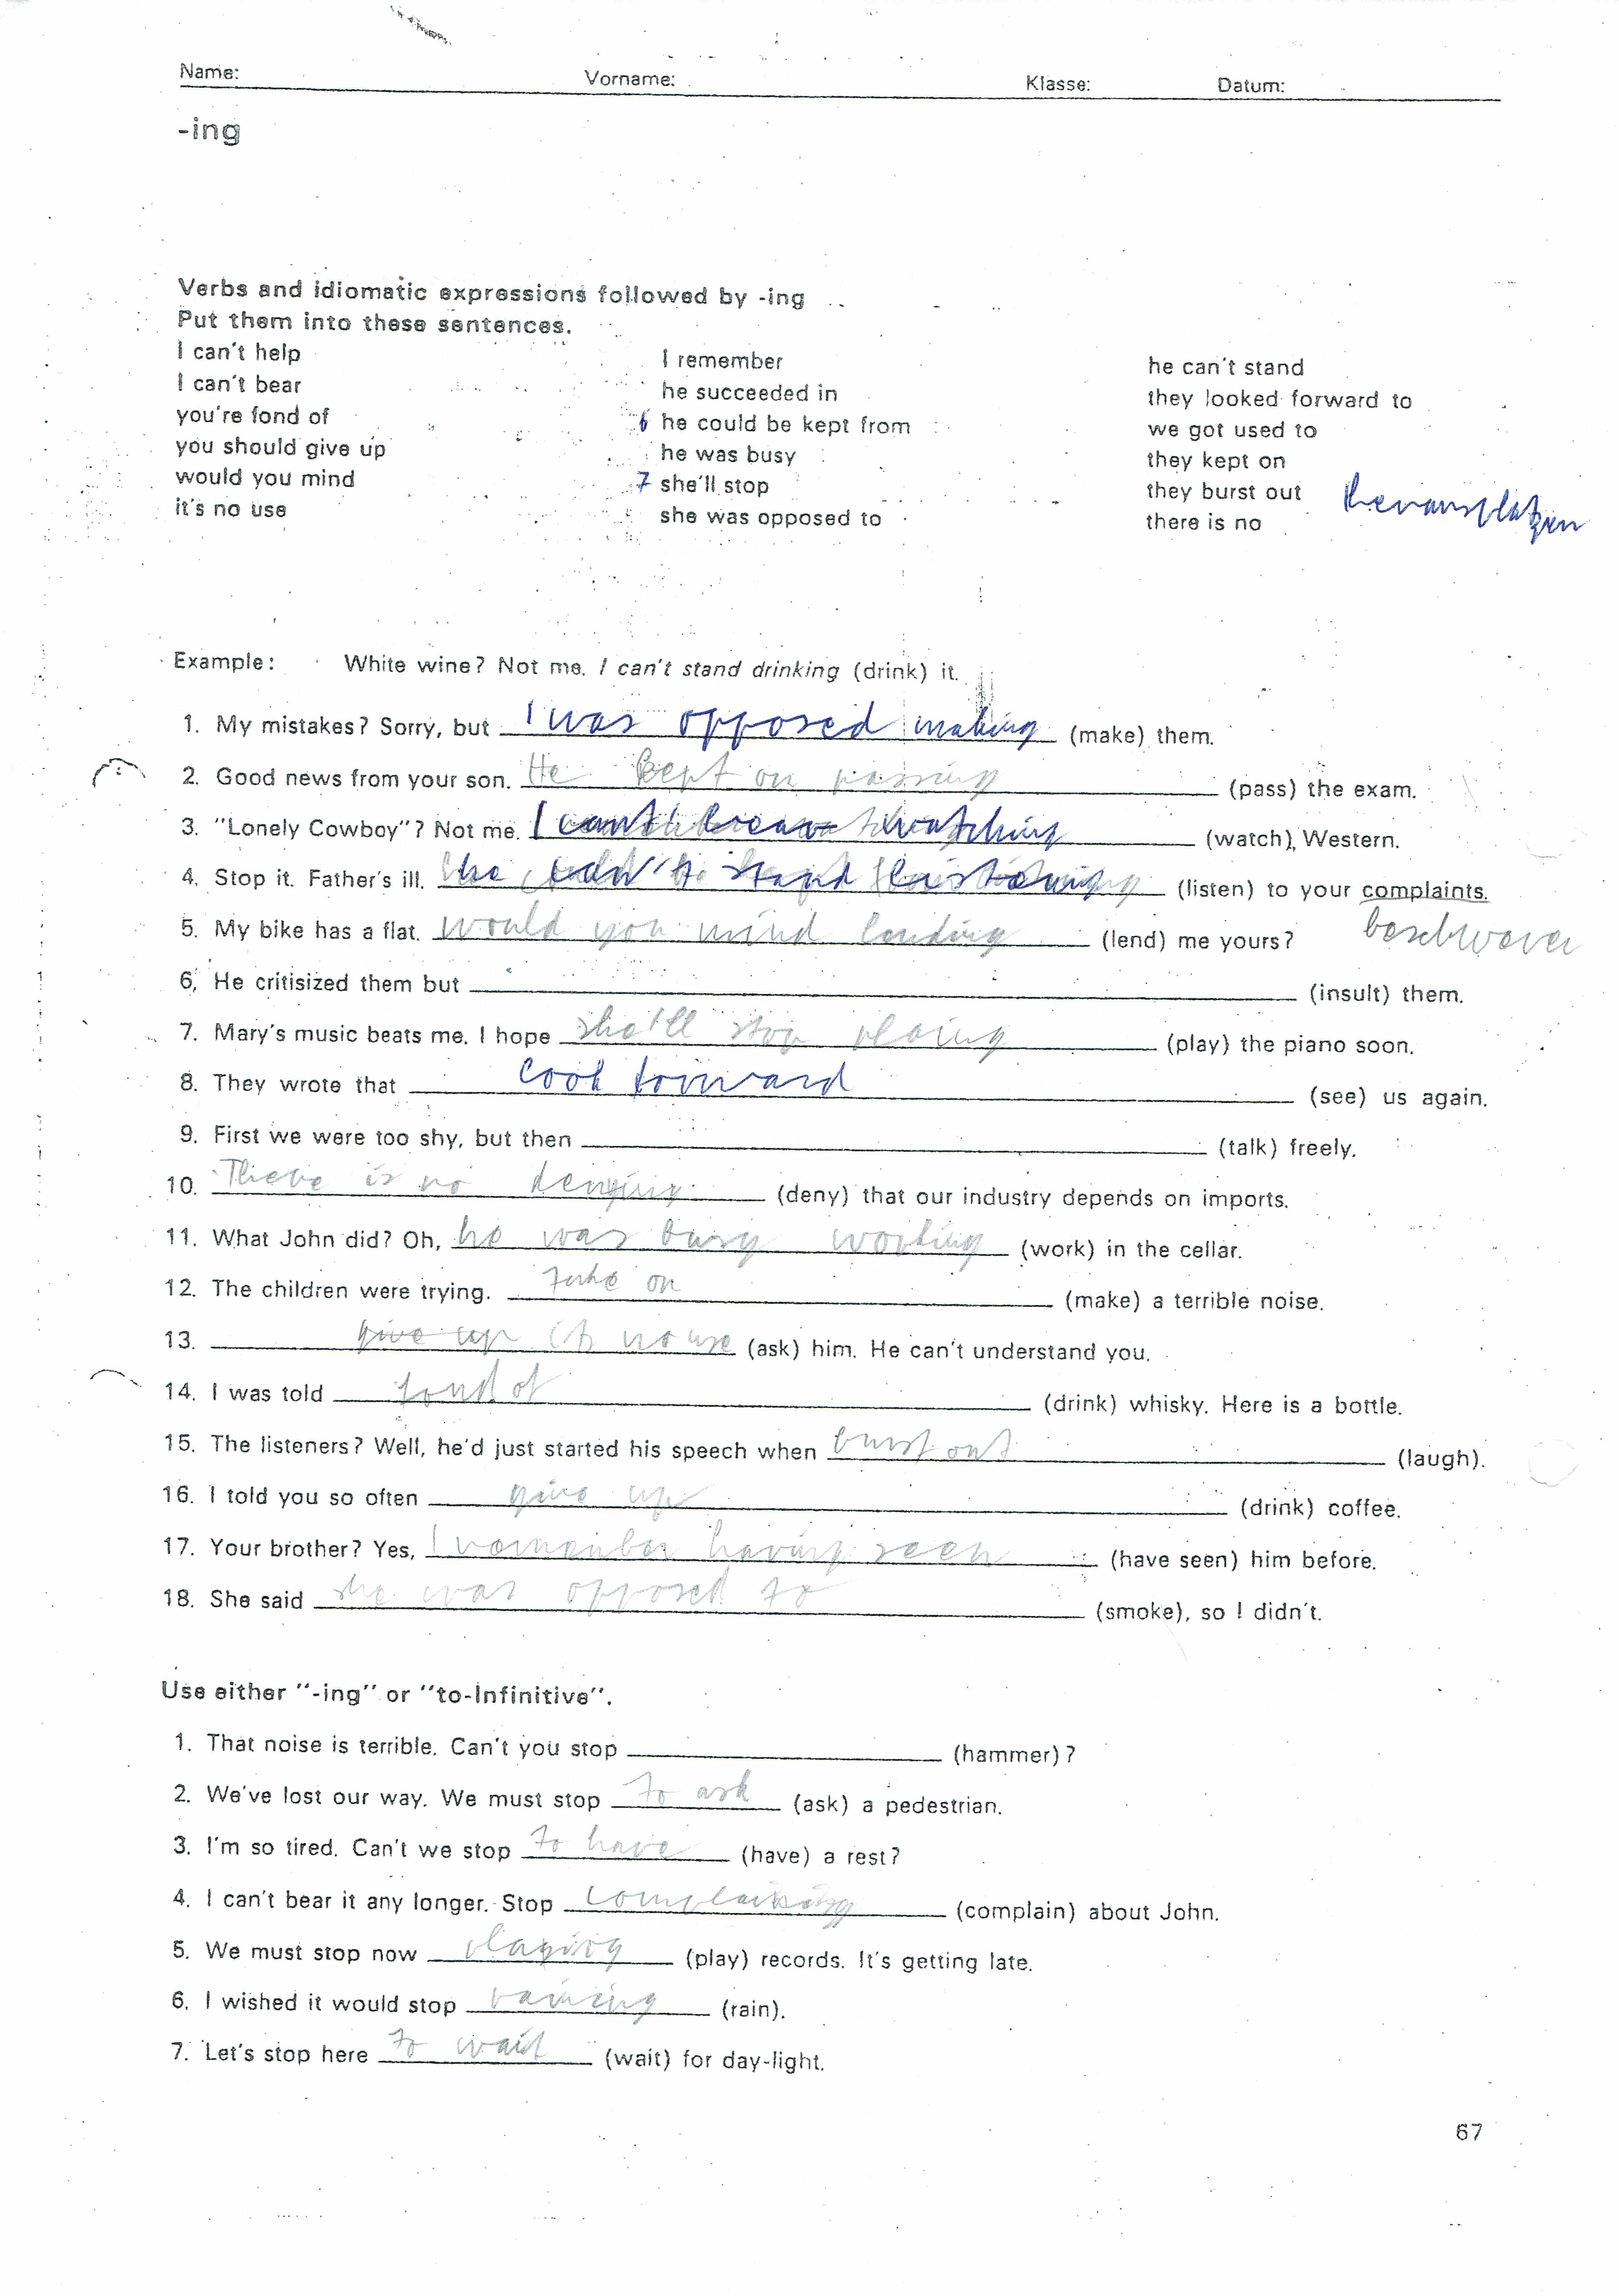 Name: Vorname: Klasse: Datum:
-ing
Verbs and idiomatic expressions followed by -ing
Put them into these sentences.
I can't help
I can't bear
you're fond of
you should give up
would you mind
it's no use
I remember
he succeeded in
6 he could be kept from
he was busy
7 she'll stop
she was opposed to
he can't stand
they looked forward to
we got used to
they kept on
they burst out herausplatzen
there is no
Example: White wine? Not me. I can't stand drinking (drink) it.
1. My mistakes? Sorry, but I was opposed making (make) them.
2. Good news from your son. He kept on passing (pass) the exam.
3. "Lonely Cowboy"? Not me. I can't bear watching (watch) Western.
4. Stop it. Father's ill. he can't stand listening (listen) to your complaints.
5. My bike has a flat. would you mind lending (lend) me yours?
6. He critisized them but (insult) them.
7. Mary's music beats me. I hope she'll stop plaing (play) the piano soon.
8. They wrote that look forward (see) us again.
9. First we were too shy, but then (talk) freely.
10. There is no denying (deny) that our industry depends on imports.
11. What John did? Oh, he was busy working (work) in the cellar.
12. The children were trying. on (make) a terrible noise.
13. give up it's no use (ask) him. He can't understand you.
14. I was told fond of (drink) whisky. Here is a bottle.
15. The listeners? Well, he'd just started his speech when burst out (laugh).
16. I told you so often give up (drink) coffee.
17. Your brother? Yes, I remember having seen (have seen) him before.
18. She said she was opposed to (smoke), so I didn't.
Use either "-ing" or "to-Infinitive".
1. That noise is terrible. Can't you stop (hammer)?
2. We've lost our way. We must stop to ask (ask) a pedestrian.
3. I'm so tired. Can't we stop to have (have) a rest?
4. I can't bear it any longer. Stop complaining (complain) about John.
5. We must stop now playing (play) records. It's getting late.
6. I wished it would stop raining (rain).
7. Let's stop here to wait (wait) for day-light.
67